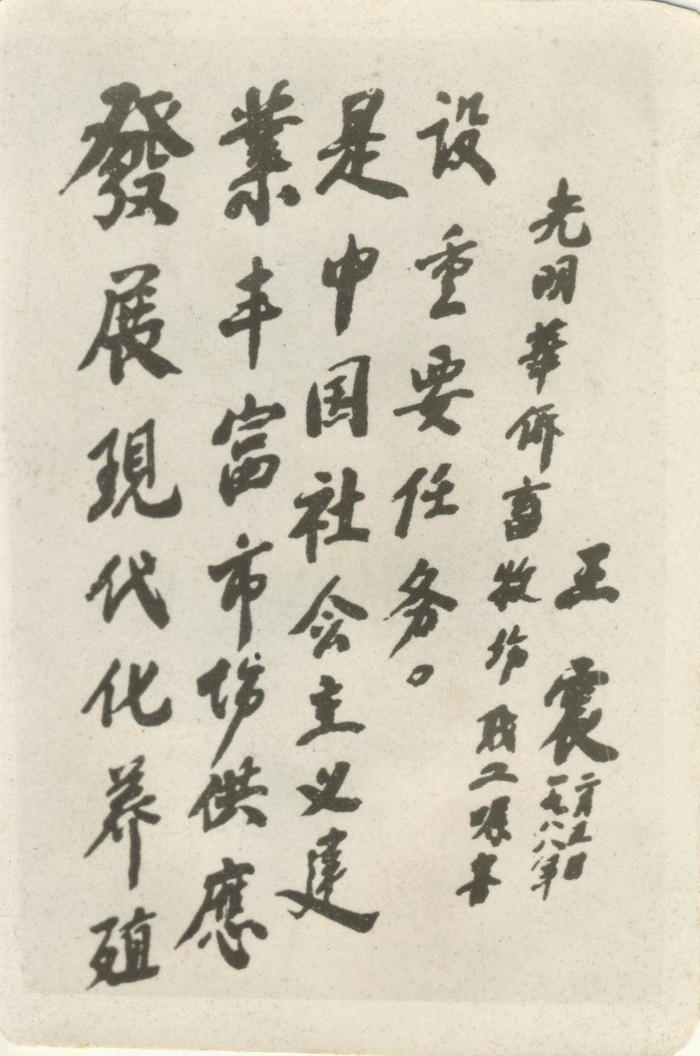 發展現代化养殖
業丰富市场供應
是中国社会主义建
设重要任务。
光明華侨畜牧场职工嘱書
王震
一九八八年
二月五日